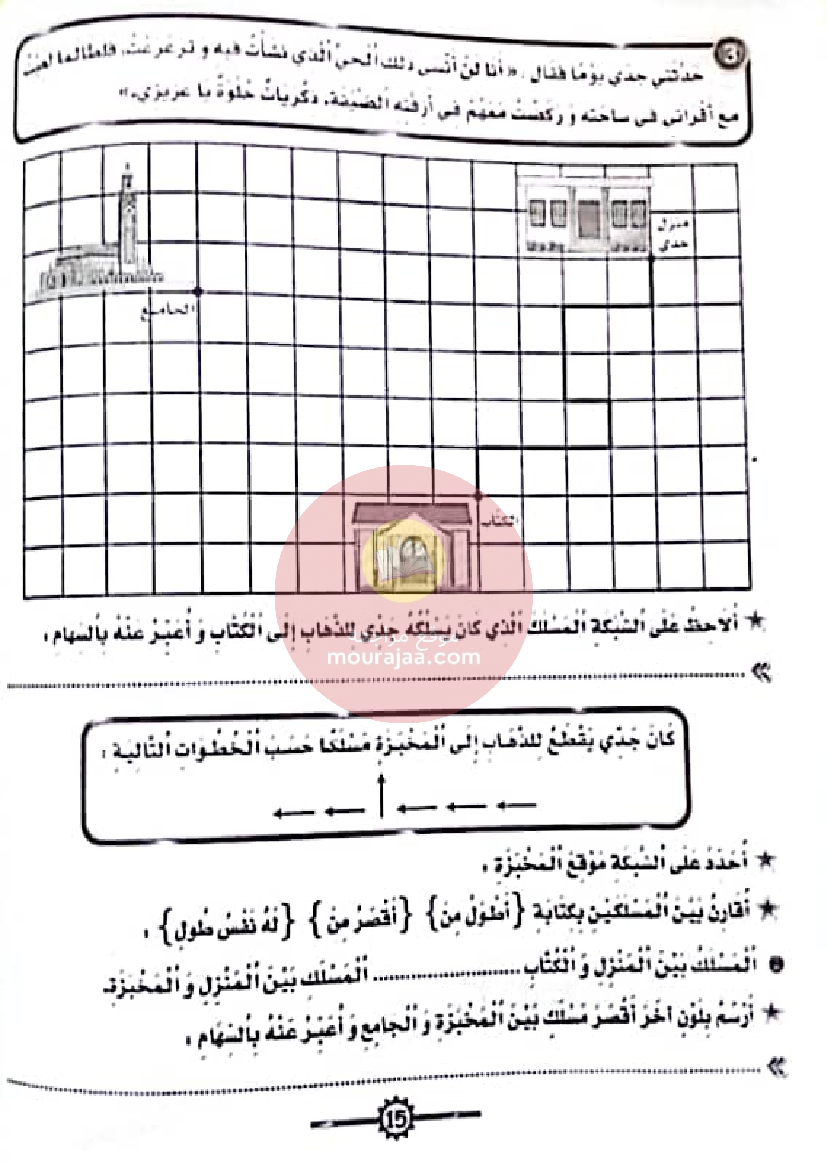 3
حَدَّثَنِي جَدِّي يَوْمًا فَقَالَ : « أَنَا لَنْ أَنْسَى ذَلِكَ ٱلْحَيَّ ٱلَّذِي نَشَأْتُ فِيهِ وَ تَرَعْرَعْتُ، فَلَطَالَمَا لَعِبْتُ
مَعَ أَقْرَانِي فِي سَاحَتِهِ وَ رَكَضْتُ مَعَهُمْ فِي أَزِقَّتِهِ ٱلضَّيِّقَةِ، ذِكْرَيَاتٌ حُلْوَةٌ يَا عَزِيزِي.»
منزل
جدي
الجامع
الكتاب
موقع مراجعة
mourajaa.com
★ أُلَاحِظُ عَلَى ٱلشَّبَكَةِ ٱلْمَسْلَكَ ٱلَّذِي كَانَ يَسْلُكُهُ جَدِّي لِلذَّهَابِ إِلَى ٱلْكُتَّابِ وَ أُعَبِّرُ عَنْهُ بِٱلسِّهَامِ :
كَانَ جَدِّي يَقْطَعُ لِلذَّهَابِ إِلَى ٱلْمَخْبَزَةِ مَسْلَكًا حَسَبَ ٱلْخُطُوَاتِ ٱلتَّالِيَةِ :
★ أُحَدِّدُ عَلَى ٱلشَّبَكَةِ مَوْقِعَ ٱلْمَخْبَزَةِ :
★ أُقَارِنُ بَيْنَ ٱلْمَسْلَكَيْنِ بِكِتَابَةِ {أَطْوَلُ مِنْ} {أَقْصَرُ مِنْ} {لَهُ نَفْسُ طُولِ} :
● ٱلْمَسْلَكُ بَيْنَ ٱلْمَنْزِلِ وَ ٱلْكُتَّابِ ........................ ٱلْمَسْلَكِ بَيْنَ ٱلْمَنْزِلِ وَ ٱلْمَخْبَزَةِ.
★ أَرْسُمُ بِلَوْنٍ آخَرَ أَقْصَرَ مَسْلَكٍ بَيْنَ ٱلْمَخْبَزَةِ وَ ٱلْجَامِعِ وَ أُعَبِّرُ عَنْهُ بِٱلسِّهَامِ :
15